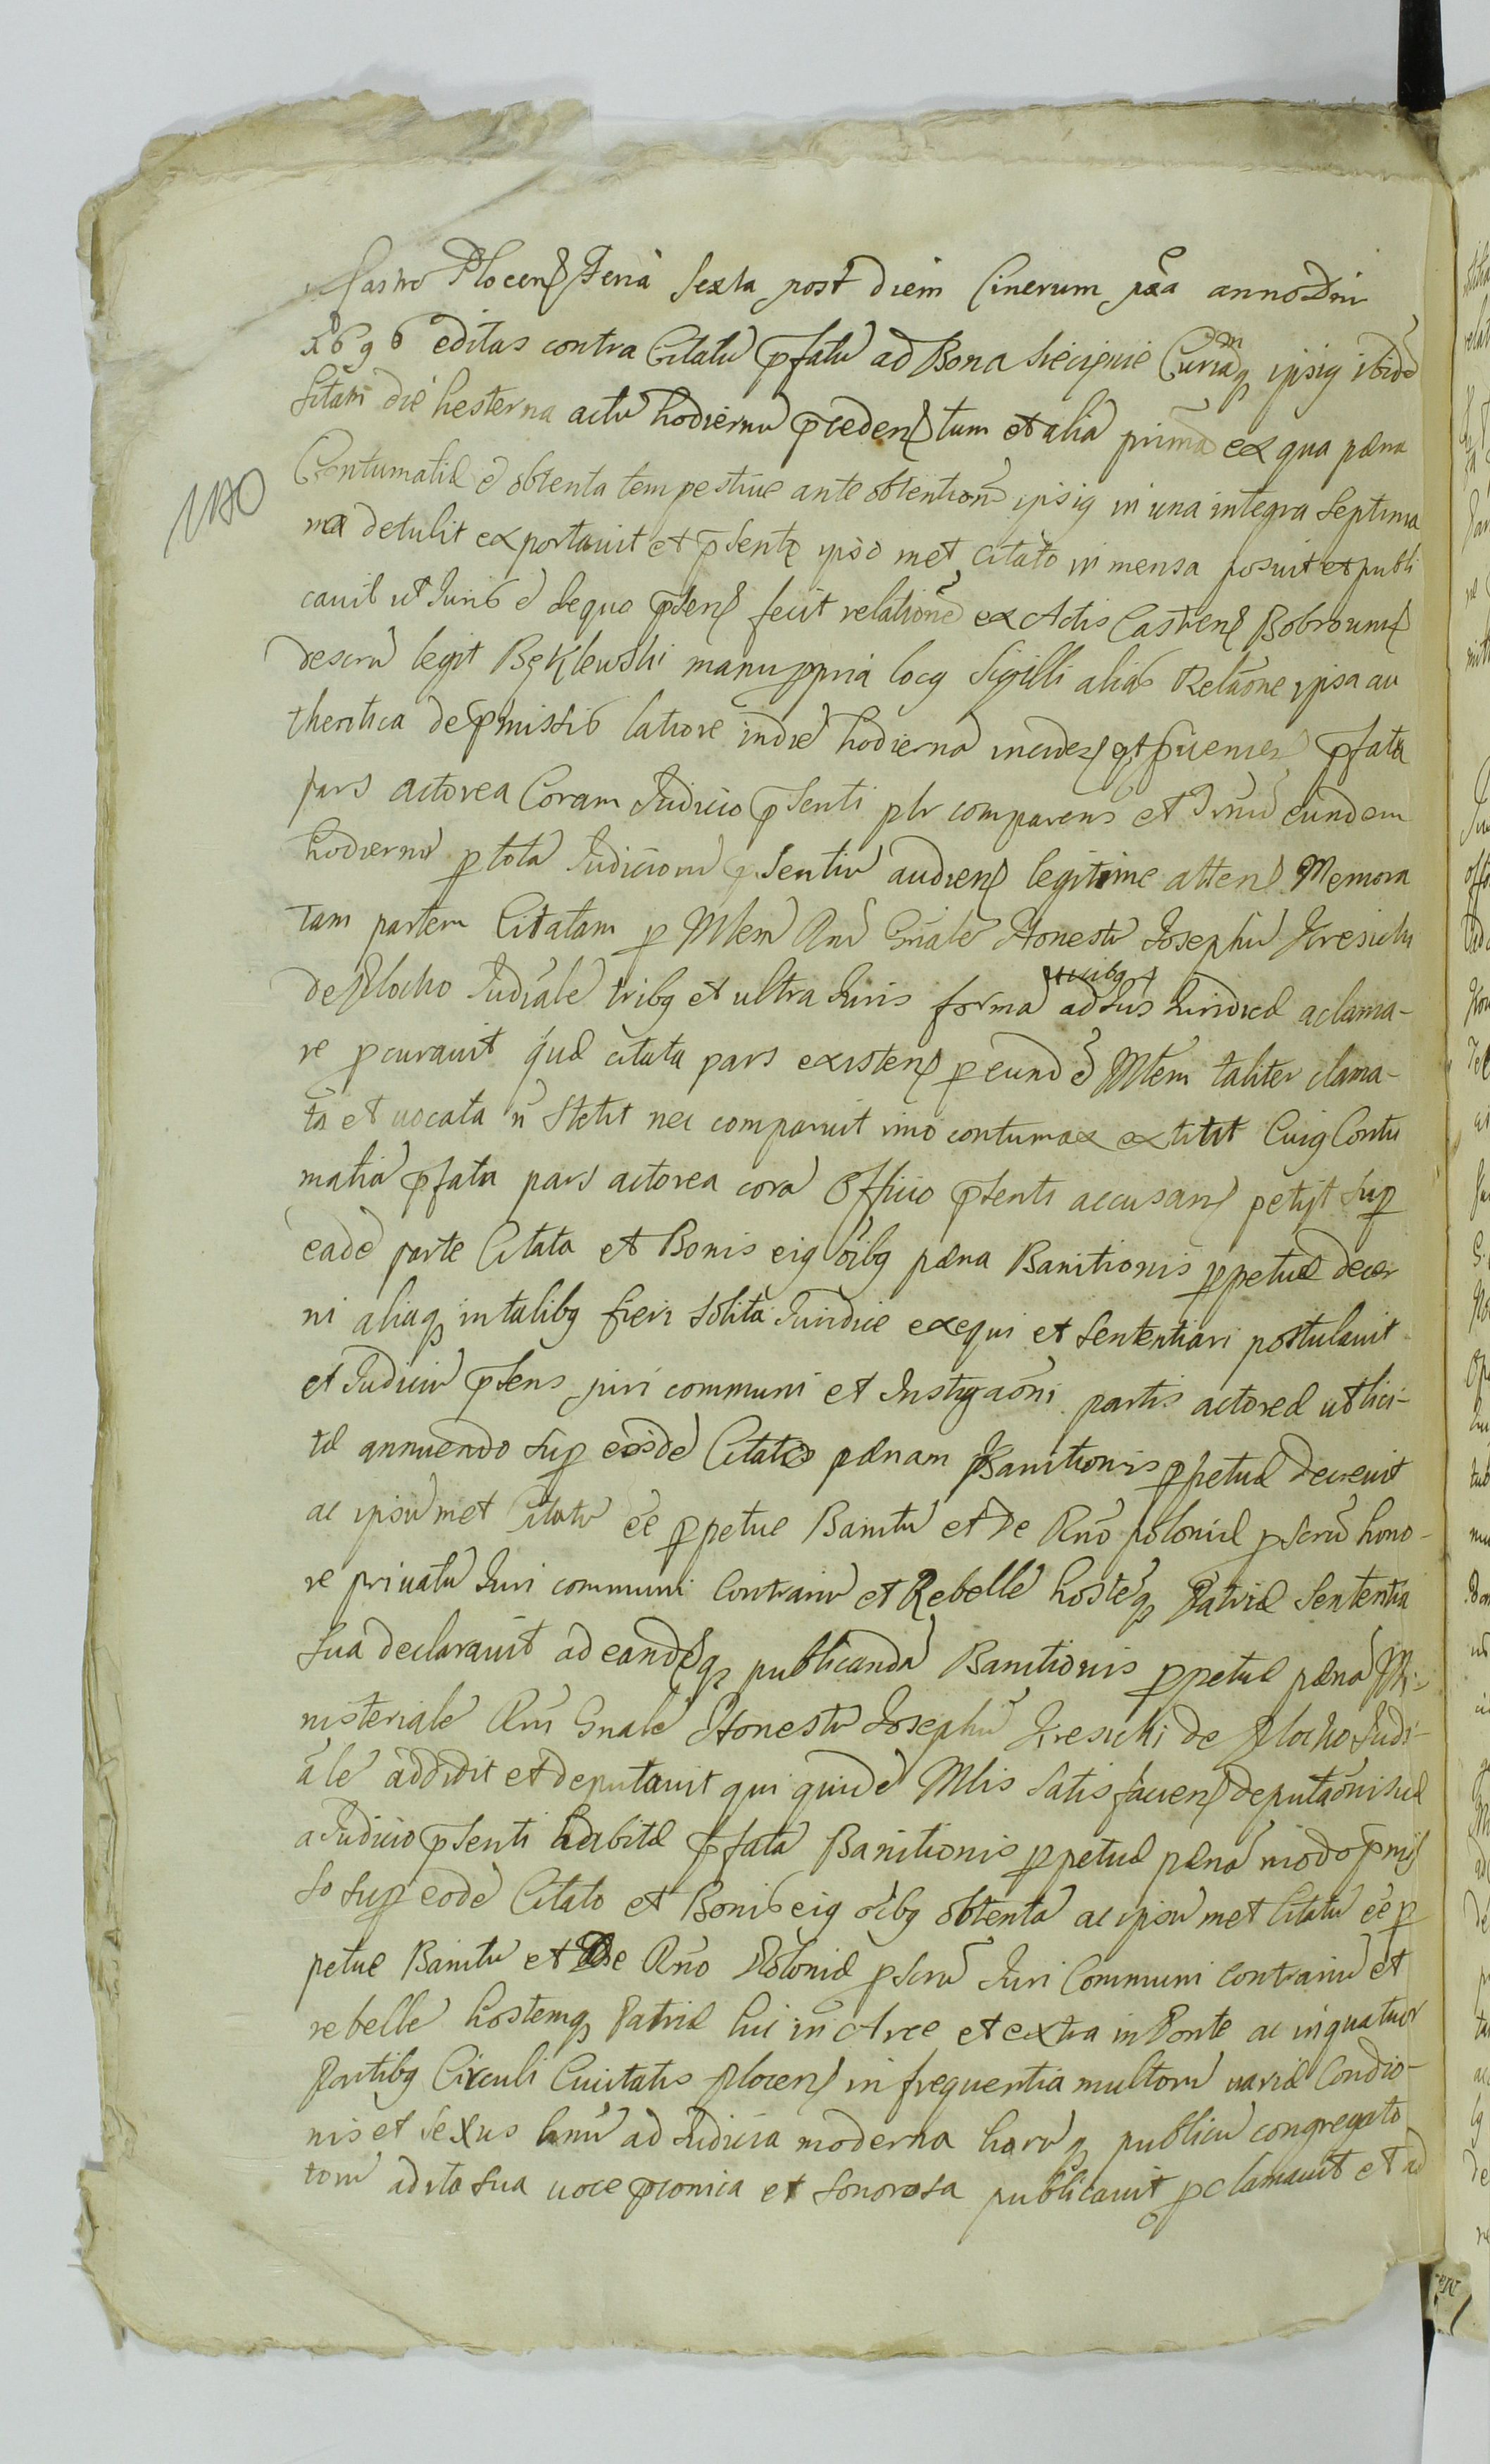 Castro Plocen Feria Sexta post diem Cinerum pxa anno Dni
1696 editas contra Citatu pfatu ad Bona Siecipnie Curiaq ipsig ibide
sitam die hesterna actu hodiernu pceden tum et alia prima ex qua pæna
Contumatiæ e obtenta tempestiue ante obtentione ipsig in una integra Septima
na detulit exportauit et psente ipso met citato in mensa posuit et publi
cauit ut Juris e de quo psens fecit relatione ex Actis Castren Bobrounen
descru legit Bęklewski manu ppria locg Sigilli alias Relaone ipsa au
thentica de pmissis latiore in die hodierna inciden et pueniens pfata
pars actorea Coram Judicio psenti plr comparens et Trnu eundem
hodiernu p tota Judicioru psentiu audien legitime atten Memora
tam partem Citatam p Mlem Rni Gnale Honestu Josephu Kresicki
de Plocko Judiale tribg et ultra Juris forma ad Jus Juridicæ aclama-
re pcurauit quæ citata pars existens p eunde Mlem taliter clama-
ta et uocata n stetit nec comparuit imo contumax extitit Cuig Contu
matia pfata pars actorea cora Officio psenti accusans petijt Sup
eade parte Citata et Bonis eig oibg pæna Banitionis ppetuæ decer
ni aliaq in talibg fieri solita Juridice exequi et Sententiari postulauit
et Judiciu psens juri communi et Instigaoni partis actoreæ ut lici-
tæ annuendo Sup eosde Citato pænam Banitionis ppetuæ decreuit
ac ipsu met Citatu ee ppetue Banitu et de Rno Poloniæ pscru hono-
re priuatu Juri communi Contrariu et Rebelle hosteq Patriæ Sententia
sua declarauit ad eandeq publicanda Banitionis ppetuæ pæna Mi-
nisteriale Rni Gnale Honestu Josephu Kresicki de Plocko Judi-
ale addidit et deputauit qui quide Mlis Satisfaciens deputaoni suæ
a Judicio psenti habitæ pfata Banitionis ppetuæ pæna modo pmis
so sup eode Citato et Bonis eig oibg obtenta ac ipsu met Citatu ee p
petue Banitu et De Rno Poloniæ pscru Juri Communi contrariu et
rebelle hostemq Patriæ hic in Arce et extra in Ponte ac in quatuor
Partibg Circuli Ciuitatis Plocen in frequentia multoru uariæ Condio-
nis et sexus hnu ad Judicia moderna haru q publicu congregato
toru adita sua uoce pconica et sonorosa publicauit pclamauit et ad